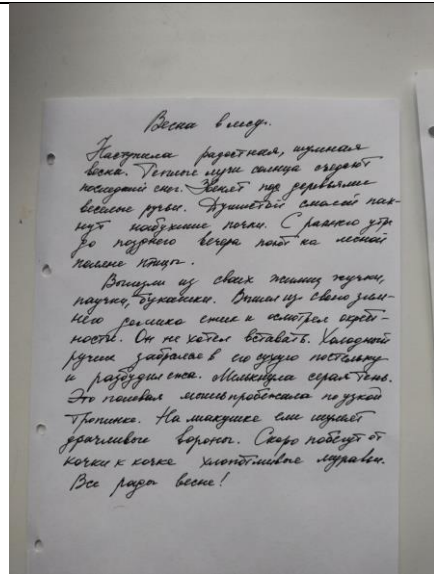 Весна в лесу.
Наступила радостная, шумная
весна. Теплые лучи солнца съедают
последний снег. Звенят под деревьями
веселые ручьи. Душистой смолой пах-
нут набухшие почки. С раннего утра
до позднего вечера поют на лесной
поляне птицы.
Вышли из своих жилищ жучки,
паучки, букашки. Вышел из своего зим-
него домика ежик и осмотрел окрест-
ности. Он не хотел вставать. Холодный
ручеек забрался в его сухую постельку
и разбудил ежа. Мелькнула серая тень.
Это полевая мышь пробежала по узкой
тропинке. На макушке ели шумят
драчливые вороны. Скоро побегут от
кочки к кочке хлопотливые муравьи.
Все рады весне!